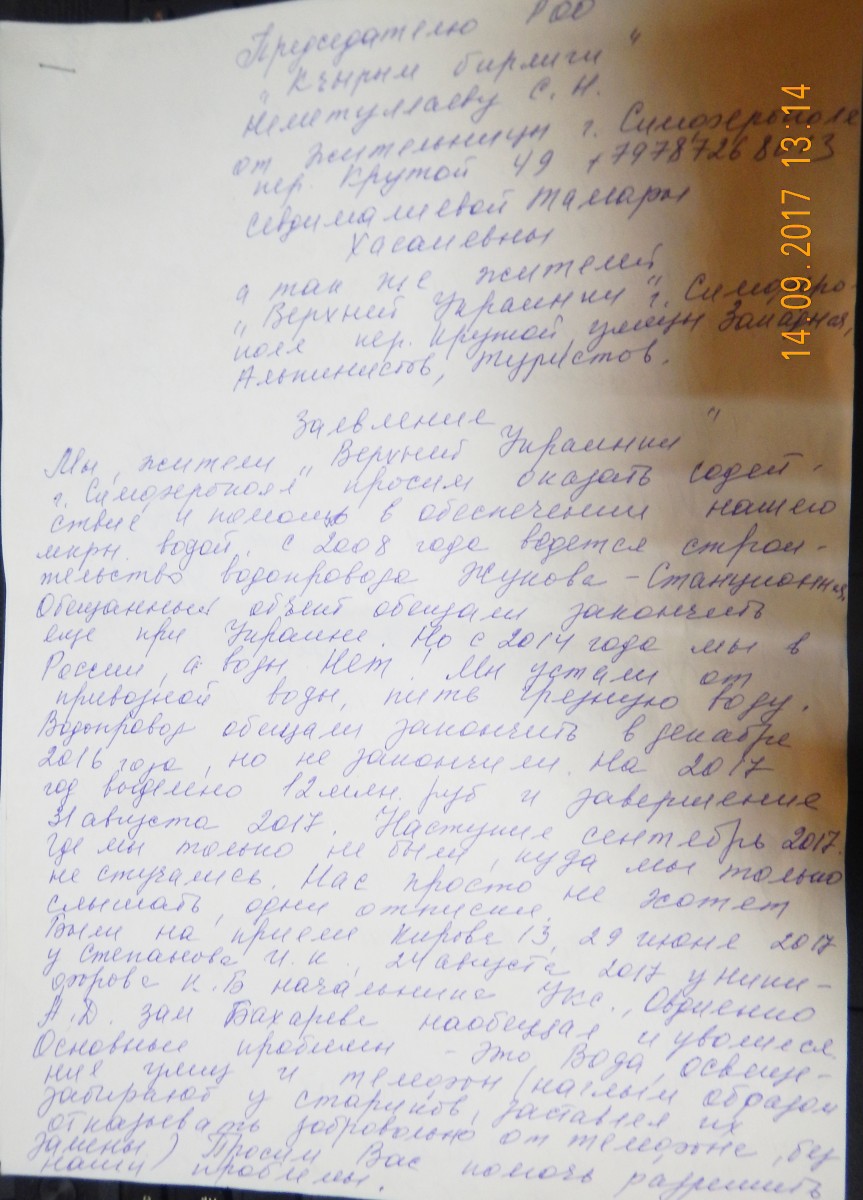 Председателю РОО
"Къырым бирлиги"
Неметуллаеву С. Н.
от жительницы г. Симферополе
пер. Крутой 49
Севдималиевой Тамары
Хасановны
а так же жителей
"Верхней Украинки" г. Симферо-
поле пер. Крутой улицы Западная,
Альпинистов, Туристов.
14.09.2017 13:14
Заявление
Мы, жители "Верхней Украинки"
г. Симферополя просим оказать содей-
ствие и помощь в обеспечении нашего
мкрн. водой. с 2008 года ведется строи-
тельство водопровода Жукова - Станционная.
Обещанный объект обещали закончить
еще при Украине. Но с 2014 года мы в
России, а воды Нет! Мы устали от
привозной воды, пить грязную воду.
Водопровод обещали закончить в декабре
2016 года, но не закончили. На 2017
год выделено 12 млн. руб и завершение
31 августа 2017. Наступил сентябрь 2017.
Где мы только не были, куда мы только
не стучались. Нас просто не хотят
слышать, одни отписки.
Были на приеме Кирова 13, 29 июне 2017
у Степанова И. К., 24 августа 2017 у Ники-
форова К. Б начальника УКС., Овдиенко
А. Д. зам Бахарева наобещал и уволился.
Основные проблемы - это Вода, освеще-
ние улиц и телефон (наглым образом
забирают у стариков, заставляя их
отказывать добровольно от телефоне, без
замены) Просим Вас помочь разрешить
наши проблемы.